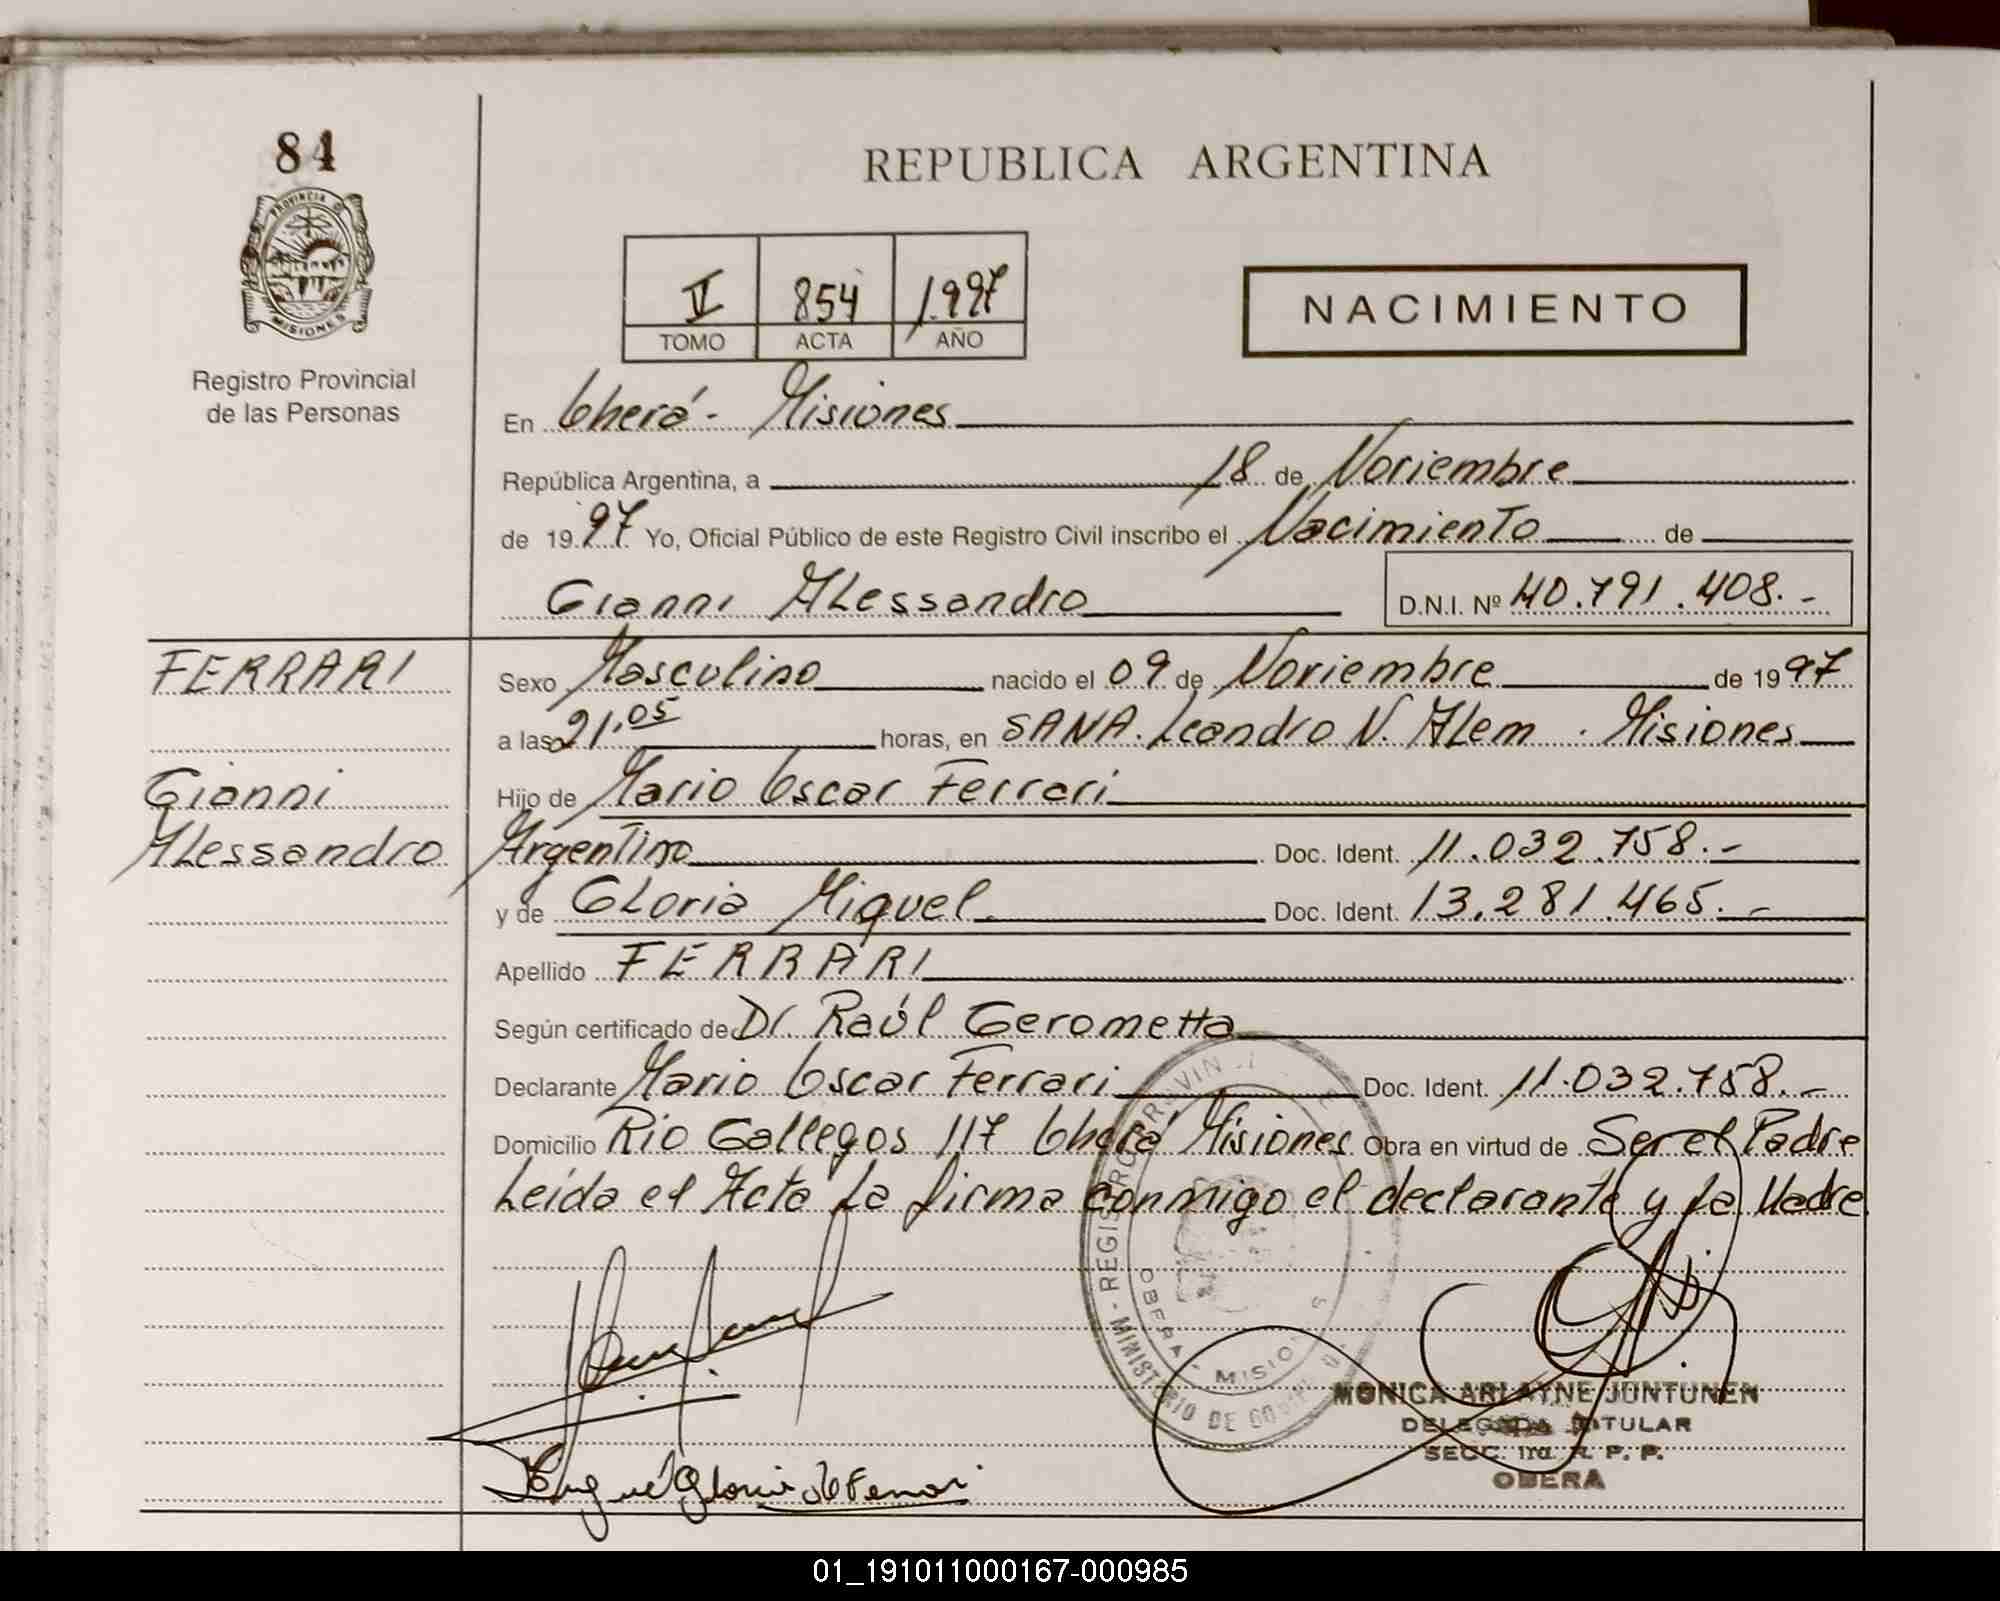 84
PROVINCIA D
MISIONES
Registro Provincial
de las Personas
REPUBLICA ARGENTINA
V 854 1.997
TOMO ACTA AÑO
NACIMIENTO
En Oberá - Misiones
República Argentina, a 18 de Noviembre
de 19 97 Yo, Oficial Público de este Registro Civil inscribo el Nacimiento de
Gianni Alessandro D.N.I. Nº 40.791.408.-
FERRARI
Gianni
Alessandro
Sexo Masculino nacido el 09 de Noviembre de 19 97
a las 21.05 horas, en SANA. Leandro N. Alem . Misiones
Hijo de Mario Oscar Ferrari
Argentino Doc. Ident. 11.032.758.-
y de Gloria Miquel Doc. Ident. 13.281.465.-
Apellido FERRARI
Según certificado de Dr. Raúl Gerometta
Declarante Mario Oscar Ferrari Doc. Ident. 11.032.758.-
Domicilio Rio Gallegos 117 Oberá Misiones Obra en virtud de Ser el Padre
Leída el Acta la firma conmigo el declarante y la Madre
REGISTRO PROVIN
MINISTERIO DE GO
OBERA - MISIO S
MONICA ARLAYNE JUNTUNEN
DELEGADA TITULAR
SECC. 1ra. R. P. P.
OBERA
Miguel Gloria de Ferrari
01_191011000167-000985